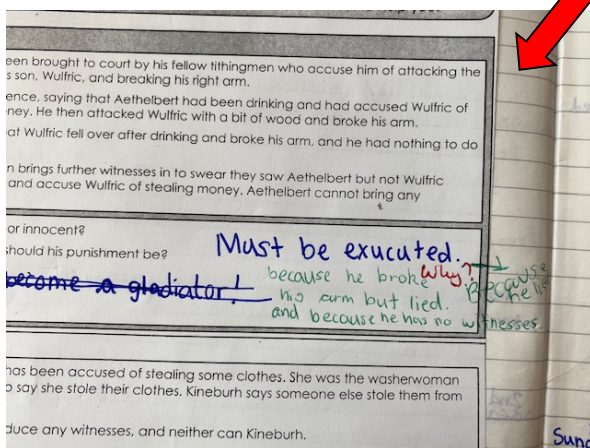 een brought to court by his fellow tithingmen who accuse him of attacking the
s son, Wulfric, and breaking his right arm.
ence, saying that Aethelbert had been drinking and had accused Wulfric of
ney. He then attacked Wulfric with a bit of wood and broke his arm.
at Wulfric fell over after drinking and broke his arm, and he had nothing to do
n brings further witnesses in to swear they saw Aethelbert but not Wulfric
and accuse Wulfric of stealing money. Aethelbert cannot bring any
or innocent?
should his punishment be?
Must be exucuted.
become a gladiator!
Why?
because he broke
his arm but lied.
and because he has no witnesses
Because
he lied
has been accused of stealing some clothes. She was the washerwoman
o say she stole their clothes. Kineburh says someone else stole them from
duce any witnesses, and neither can Kineburh.
Sund